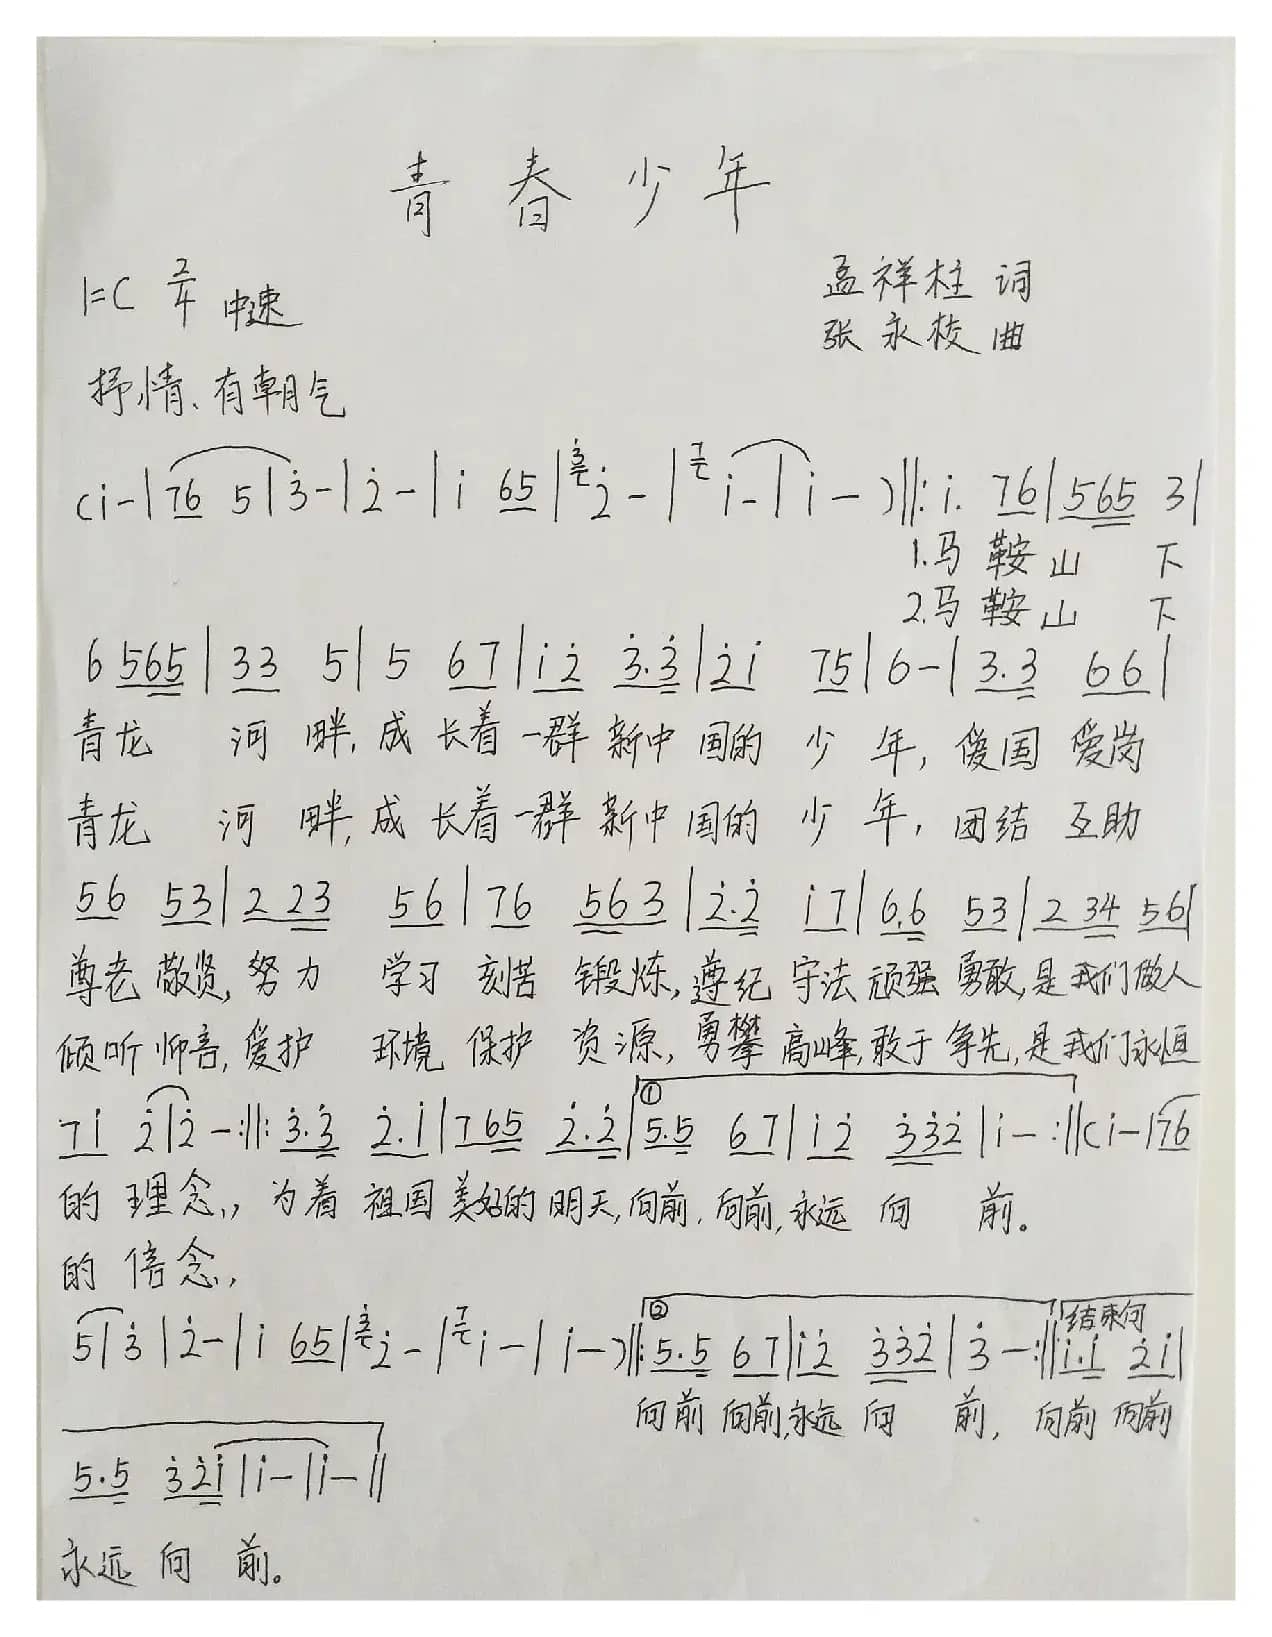 青春少年
1=C 2/4 中速
孟祥柱 词
张永校 曲
抒情、有朝气
(i-|76 5|3̇-|2̇-|i 65|3̇2̇-|7i-|i-)‖:i. 76|565 3|
1.马鞍山 下
2.马鞍山 下
6 565|33 5|5 67|i2̇ 3̇.3̇|2̇i 75|6-|3.3 66|
青龙 河畔,成长着一群新中国的少年,爱国爱岗
青龙 河畔,成长着一群新中国的少年,团结互助
56 53|2 23 56|76 563|2̇.2̇ i7|6.6 53|2 34 56|
尊老敬贤,努力 学习刻苦锻炼,遵纪守法顽强勇敢,是我们做人
倾听师音,爱护 环境保护资源,勇攀高峰,敢于争先,是我们永恒
7i 2̇|2̇-:‖:3̇.3̇ 2̇.i|765 2̇.2̇|①5.5 67|i2̇ 3̇3̇2̇|i-:‖(i-|76
的理念,,为着祖国美好的明天,向前,向前,永远向 前。
的信念,
5|3̇|2̇-|i 65|3̇2̇-|7i-|i-)‖:②5.5 67|i2̇ 3̇3̇2̇|3̇-:‖结束句 i.i 2̇i|
向前向前,永远向 前,向前向前
5.5 3̇2̇i|i-|i-‖
永远向 前。